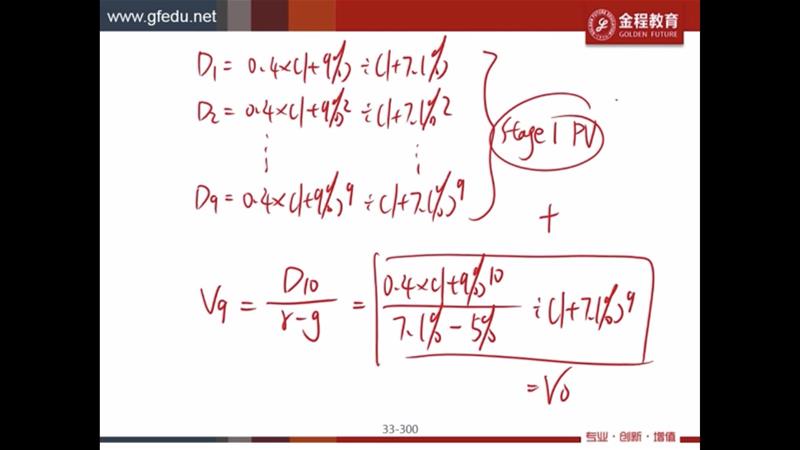 www.gfedu.net
金程教育
GOLDEN FUTURE
D₁ = 0.4×(1+9%) ÷(1+7.1%)
D₂ = 0.4×(1+9%)² ÷(1+7.1%)²
⋮ ⋮
Stage 1 PV
D₉ = 0.4×(1+9%)⁹ ÷(1+7.1%)⁹
+
V₉ = D₁₀ / r-g = 0.4×(1+9%)¹⁰ / 7.1%-5% ÷(1+7.1%)⁹
= V₀
33-300
专业·创新·增值